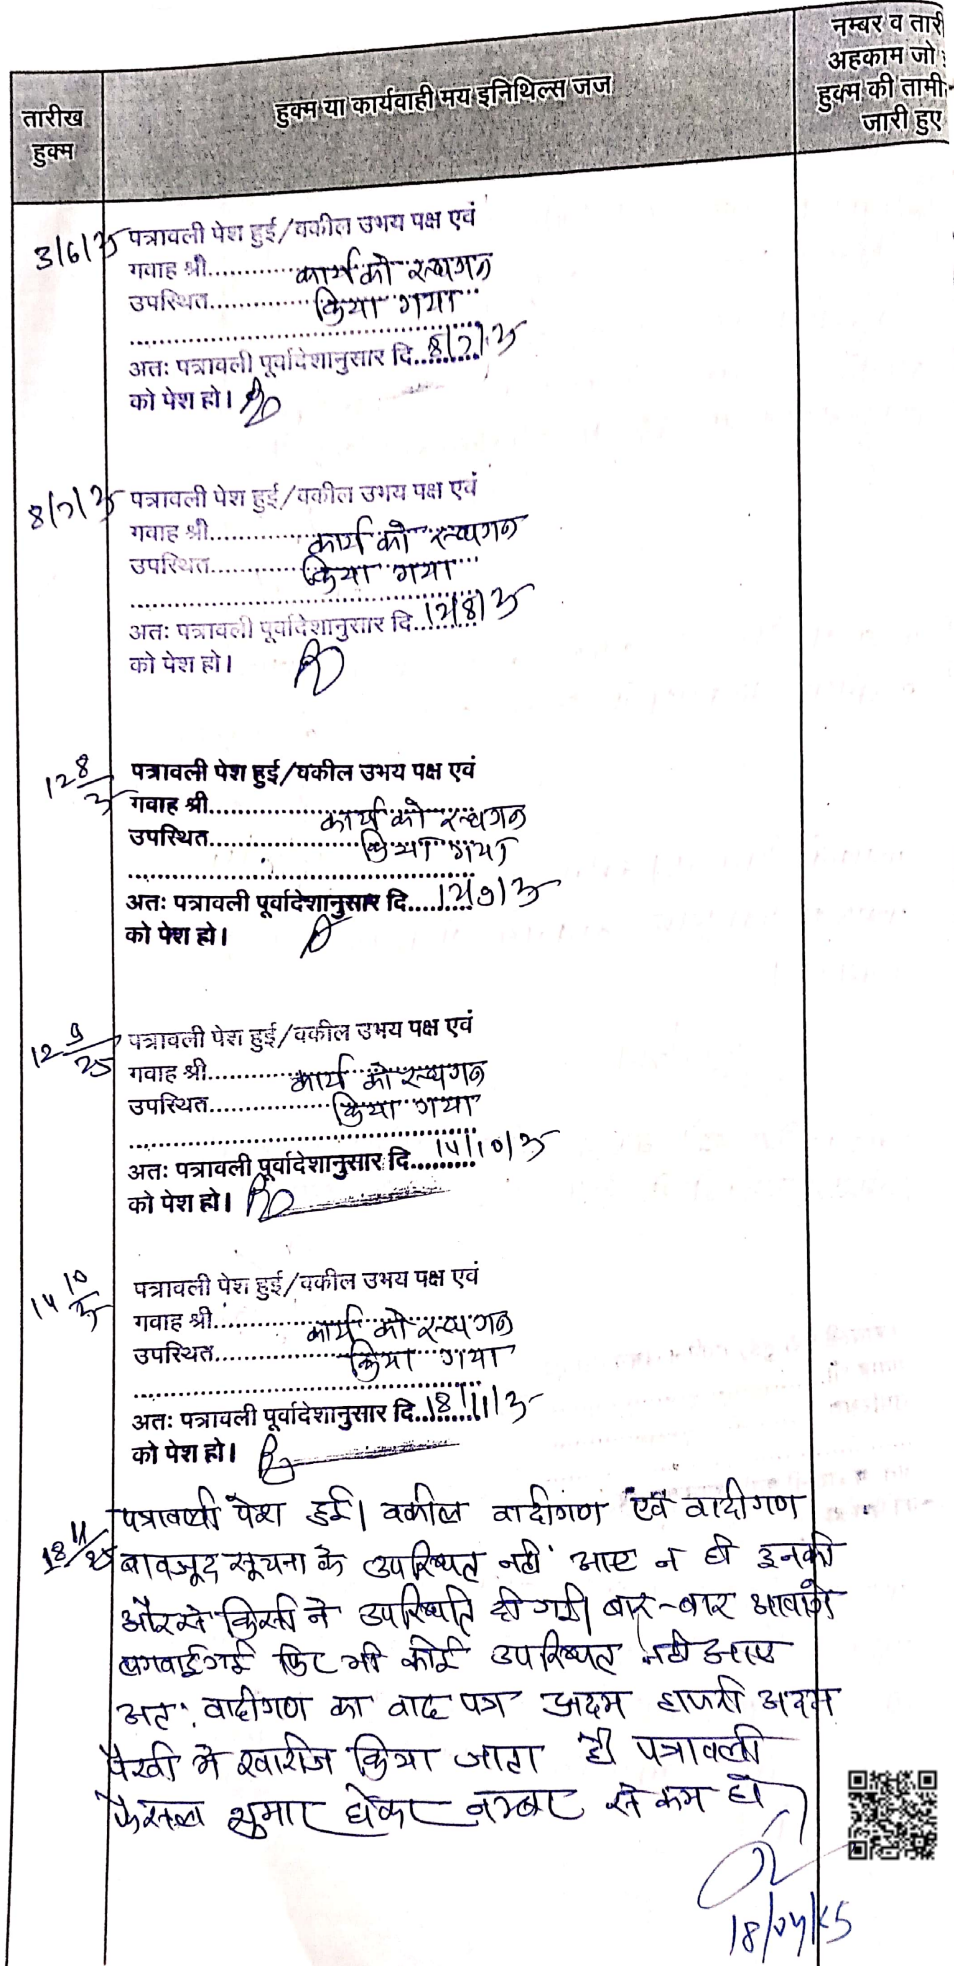 नम्बर व तारी
अहकाम जो
हुक्म की तामी
जारी हुए
तारीख
हुक्म
हुक्म या कार्यवाही मय इनिथिल्स जज
3/6/25 पत्रावली पेश हुई/वकील उभय पक्ष एवं
गवाह श्री.............कार्य को स्थगन
उपस्थित.............किया गया
अतः पत्रावली पूर्वादेशानुसार दि. 8/7/25
को पेश हो।
8/7/25 पत्रावली पेश हुई/वकील उभय पक्ष एवं
गवाह श्री.............कार्य को स्थगन
उपस्थित.............किया गया
अतः पत्रावली पूर्वादेशानुसार दि. 12/8/25
को पेश हो।
12 8/25 पत्रावली पेश हुई/वकील उभय पक्ष एवं
गवाह श्री.............कार्य को स्थगन
उपस्थित.............किया गया
अतः पत्रावली पूर्वादेशानुसार दि. 12/9/25
को पेश हो।
12 9/25 पत्रावली पेश हुई/वकील उभय पक्ष एवं
गवाह श्री.............कार्य को स्थगन
उपस्थित.............किया गया
अतः पत्रावली पूर्वादेशानुसार दि. 14/10/25
को पेश हो।
14 10/25 पत्रावली पेश हुई/वकील उभय पक्ष एवं
गवाह श्री.............कार्य को स्थगन
उपस्थित.............किया गया
अतः पत्रावली पूर्वादेशानुसार दि. 18/11/25
को पेश हो।
पत्रावली पेश हुई। वकील वादीगण एवं वादीगण
18 11/25 बावजूद सूचना के उपस्थित नहीं आए न ही इनकी
और से किसी ने उपस्थिति दी गई। बार-बार आवाजे
लगवाई गई फिर भी कोई उपस्थित नहीं आए
अतः वादीगण का वाद पत्र अदम हाजरी अदम
पैरवी मे खारीज किया जाता है। पत्रावली
फैसल शुमार होकर नम्बर से कम हो